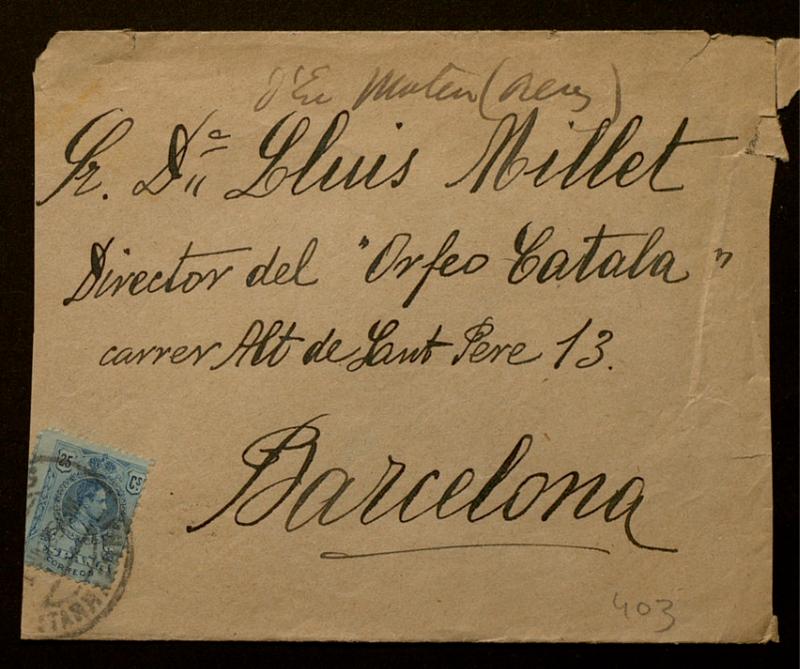 d'En Mateu (Reus)
Sr. Dn. Lluis Millet
Director del "Orfeo Catala"
carrer Alt de Sant Pere 13.
Barcelona
25 Cs
CORREOS
403